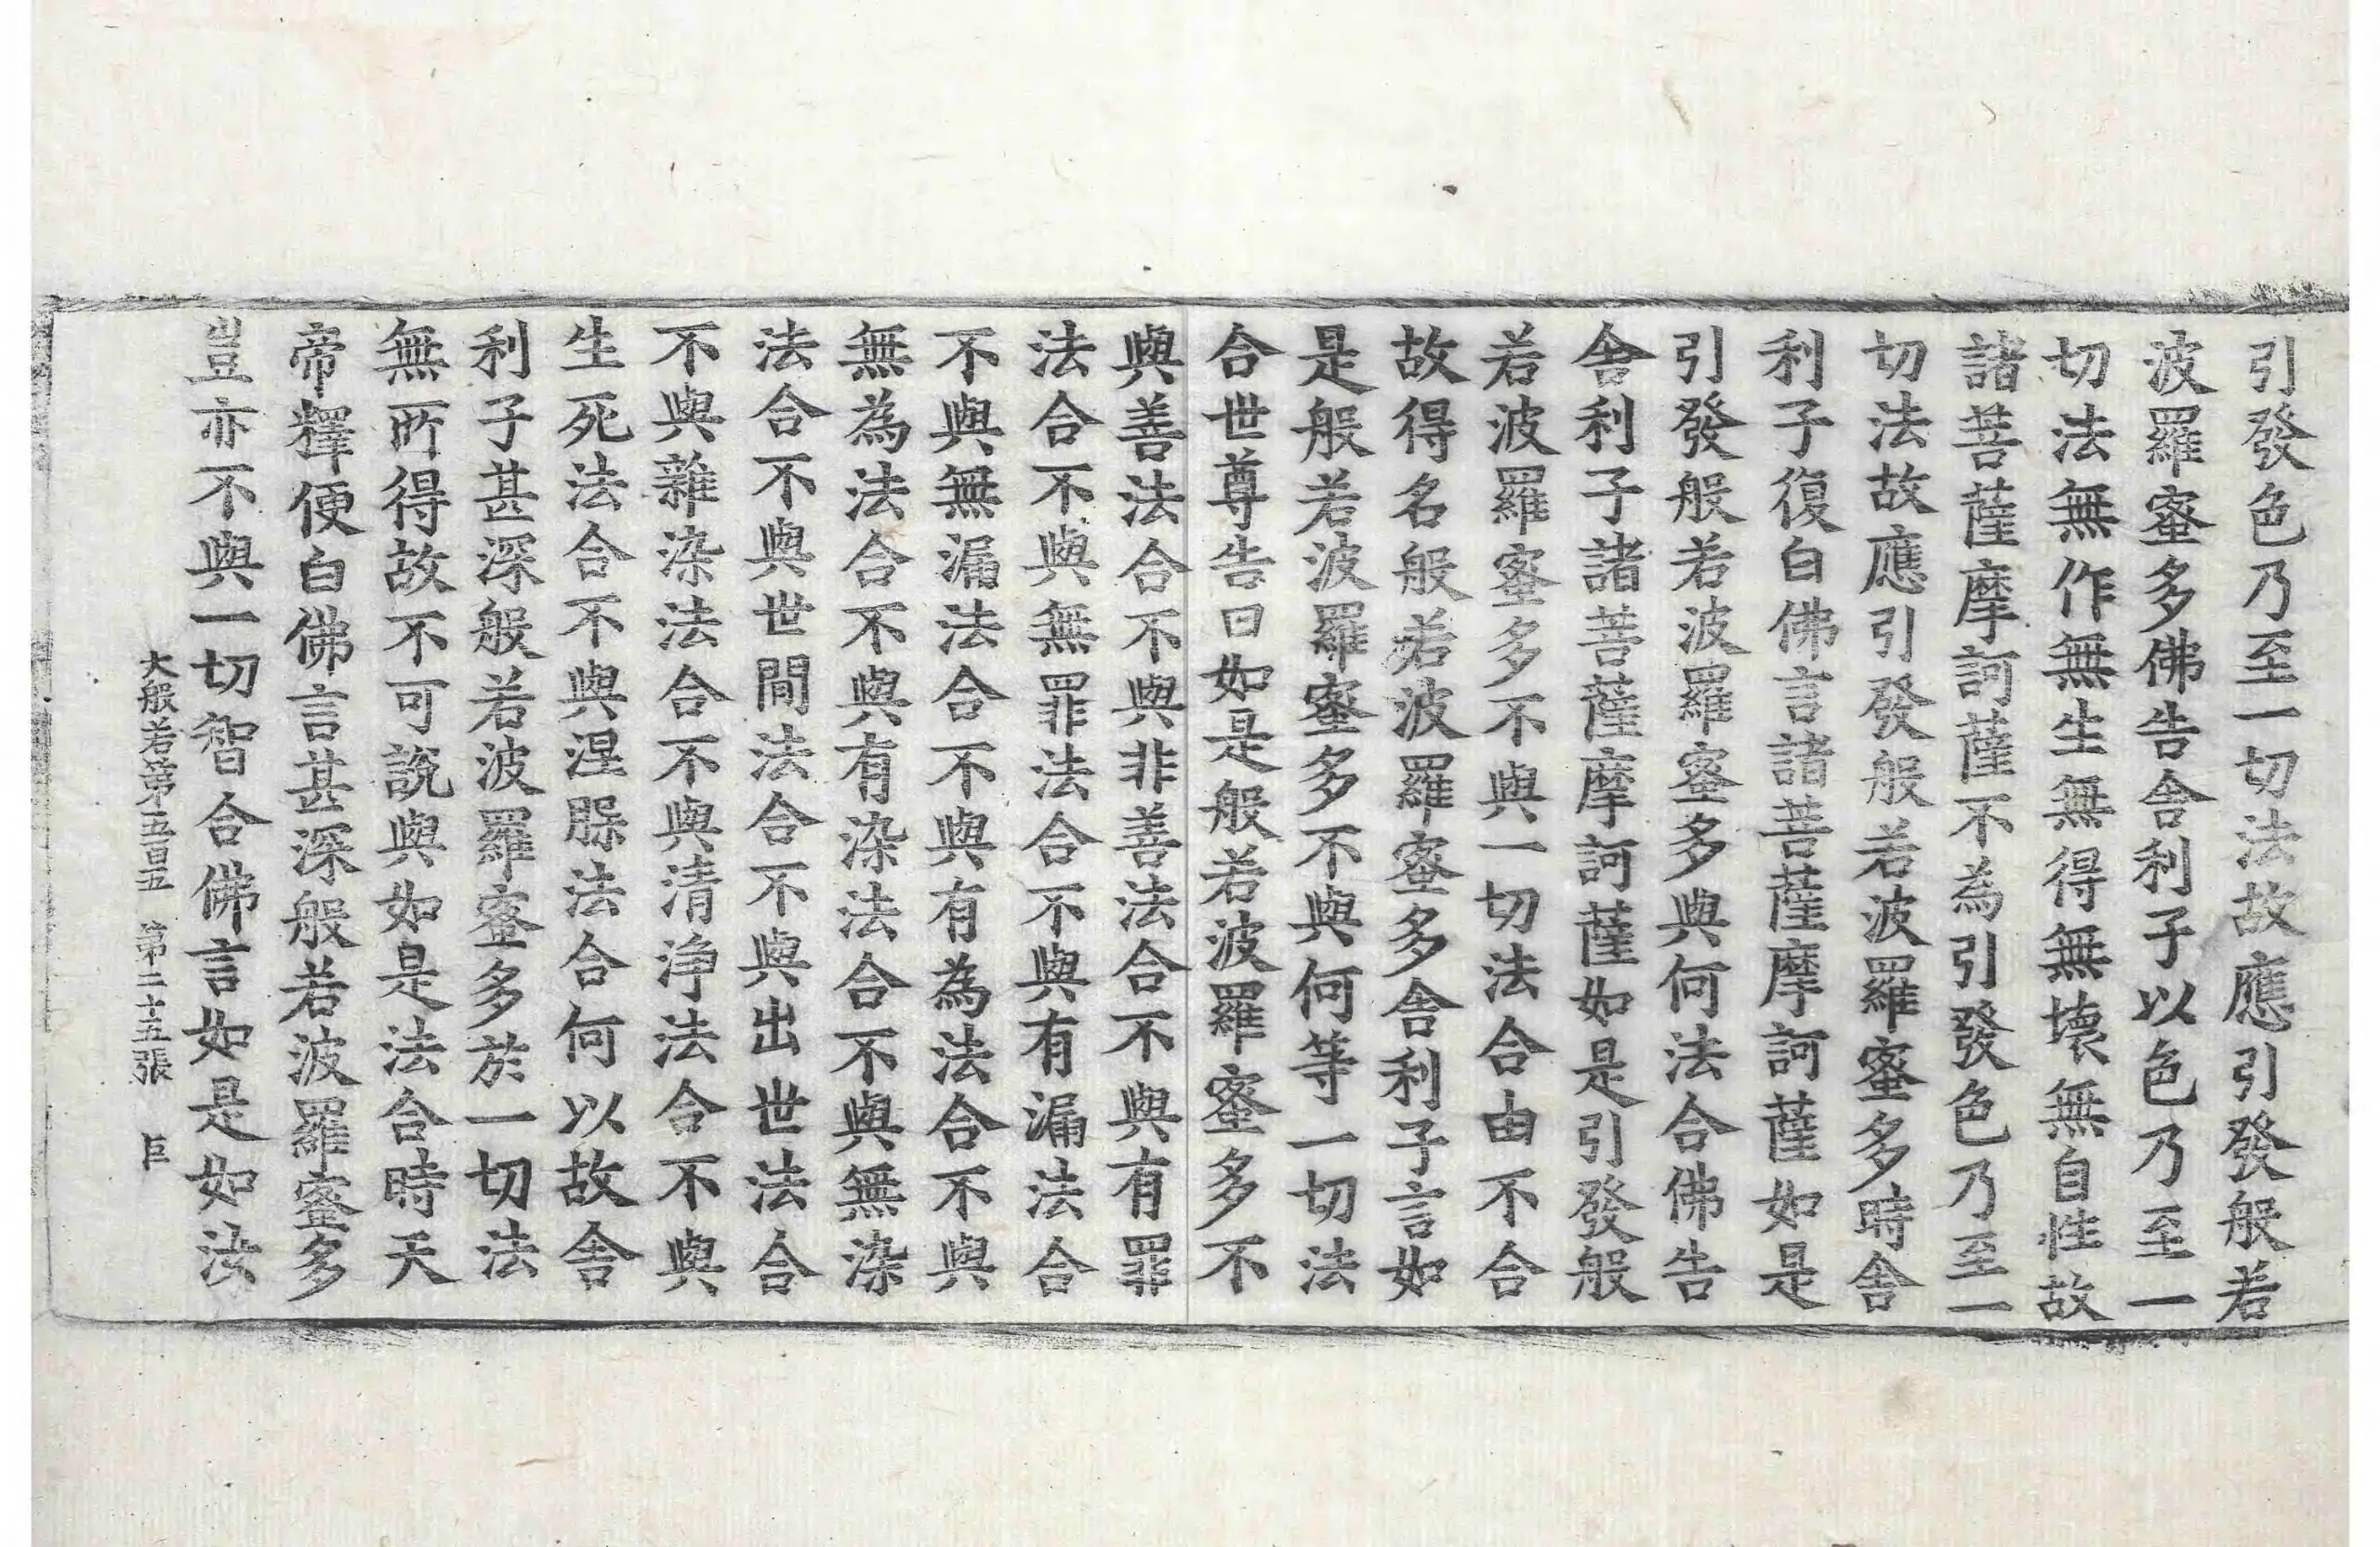 引發色乃至一切法故應引發般若
波羅蜜多佛告舍利子以色乃至一
切法無作無生無得無壞無自性故
諸菩薩摩訶薩不為引發色乃至一
切法故應引發般若波羅蜜多時舍
利子復白佛言諸菩薩摩訶薩如是
引發般若波羅蜜多與何法合佛告
舍利子諸菩薩摩訶薩如是引發般
若波羅蜜多不與一切法合由不合
故得名般若波羅蜜多舍利子言如
是般若波羅蜜多不與何等一切法
合世尊告曰如是般若波羅蜜多不
與善法合不與非善法合不與有罪
法合不與無罪法合不與有漏法合
不與無漏法合不與有為法合不與
無為法合不與有染法合不與無染
法合不與世間法合不與出世法合
不與雜染法合不與清淨法合不與
生死法合不與涅脲法合何以故舍
利子甚深般若波羅蜜多於一切法
無所得故不可說與如是法合時天
帝釋便白佛言甚深般若波羅蜜多
豈亦不與一切智合佛言如是如汝
大般若第五百五 第二十五張 巨